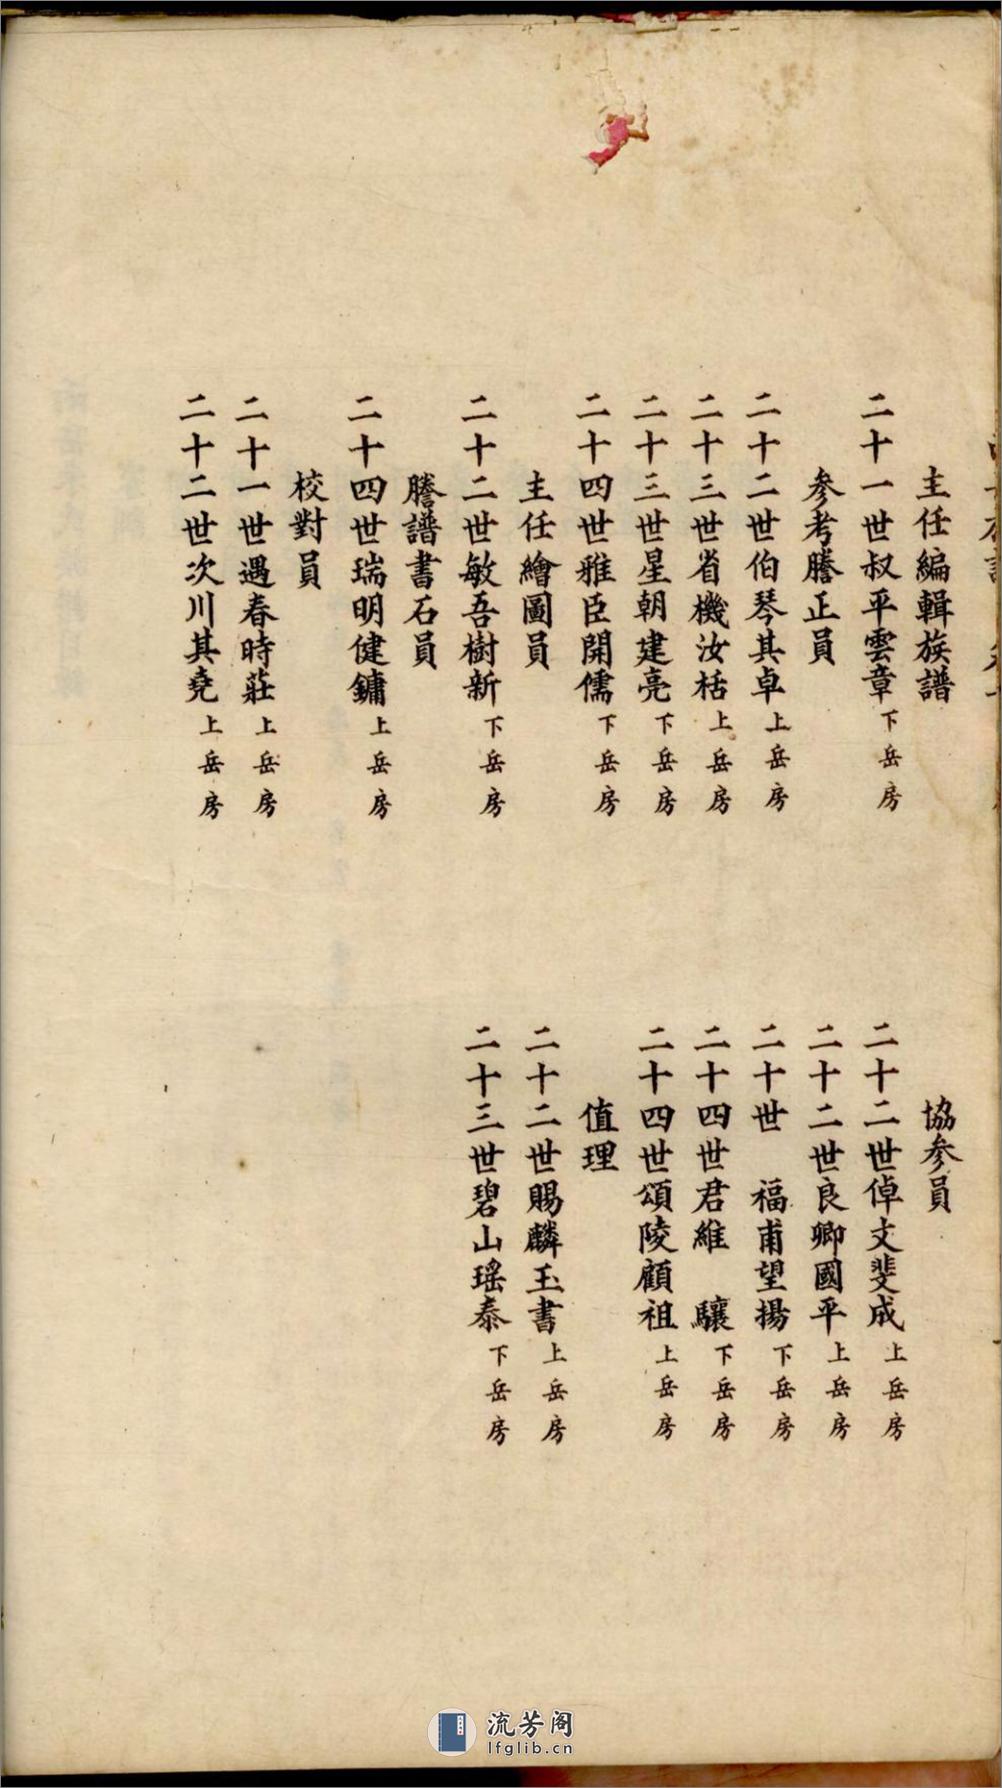 主任編輯族譜
二十一世叔平雲章下岳房
參考謄正員
二十二世伯琴其卓上岳房
二十三世省機汝栝上岳房
二十三世星朝建亮下岳房
二十四世雅臣開儒下岳房
主任繪圖員
二十二世敏吾樹新下岳房
謄譜書石員
二十四世瑞明健鏞上岳房
校對員
二十一世遇春時莊上岳房
二十二世次川其堯上岳房
協參員
二十二世倬文斐成上岳房
二十二世良卿國平上岳房
二十世 福甫望揚下岳房
二十四世君維 驤下岳房
二十四世頌陵顧祖上岳房
值理
二十二世賜麟玉書上岳房
二十三世碧山瑤泰下岳房
流芳阁
lfglib.cn